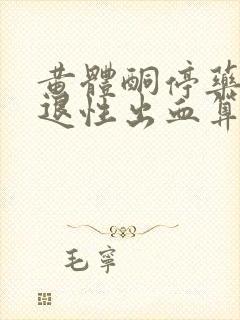 黄體酮停藥
退性出血算
毛寧